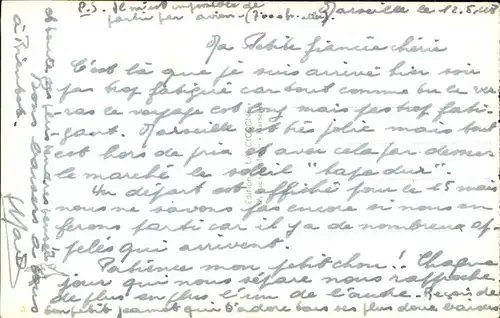 P.S. Il m'est impossible de
partir par avion (7000 fr. aller)
Marseille le 12.5.
Ma Petite fiancée chérie
C'est là que je suis arrivé hier soir
pas trop fatigué car tout comme tu le ver-
ras le voyage est long mais pas trop fati-
gant. Marseille est très jolie mais tout
est hors de prix et avec cela par dessus
le marché le soleil "tape dur".
Un départ est affiché pour le 15 mai
nous ne savons pas encore si nous en
ferons parti car il y a de nombreux ap-
pelés qui arrivent.
Patience mon petit chou! Chaque
jour qui nous sépare nous rapproche
de plus en plus l'un de l'autre. Reçois de
ton petit qui t'adore tous ses plus doux baisers
et tendres
Bons baisers à tous
à Bientôt.